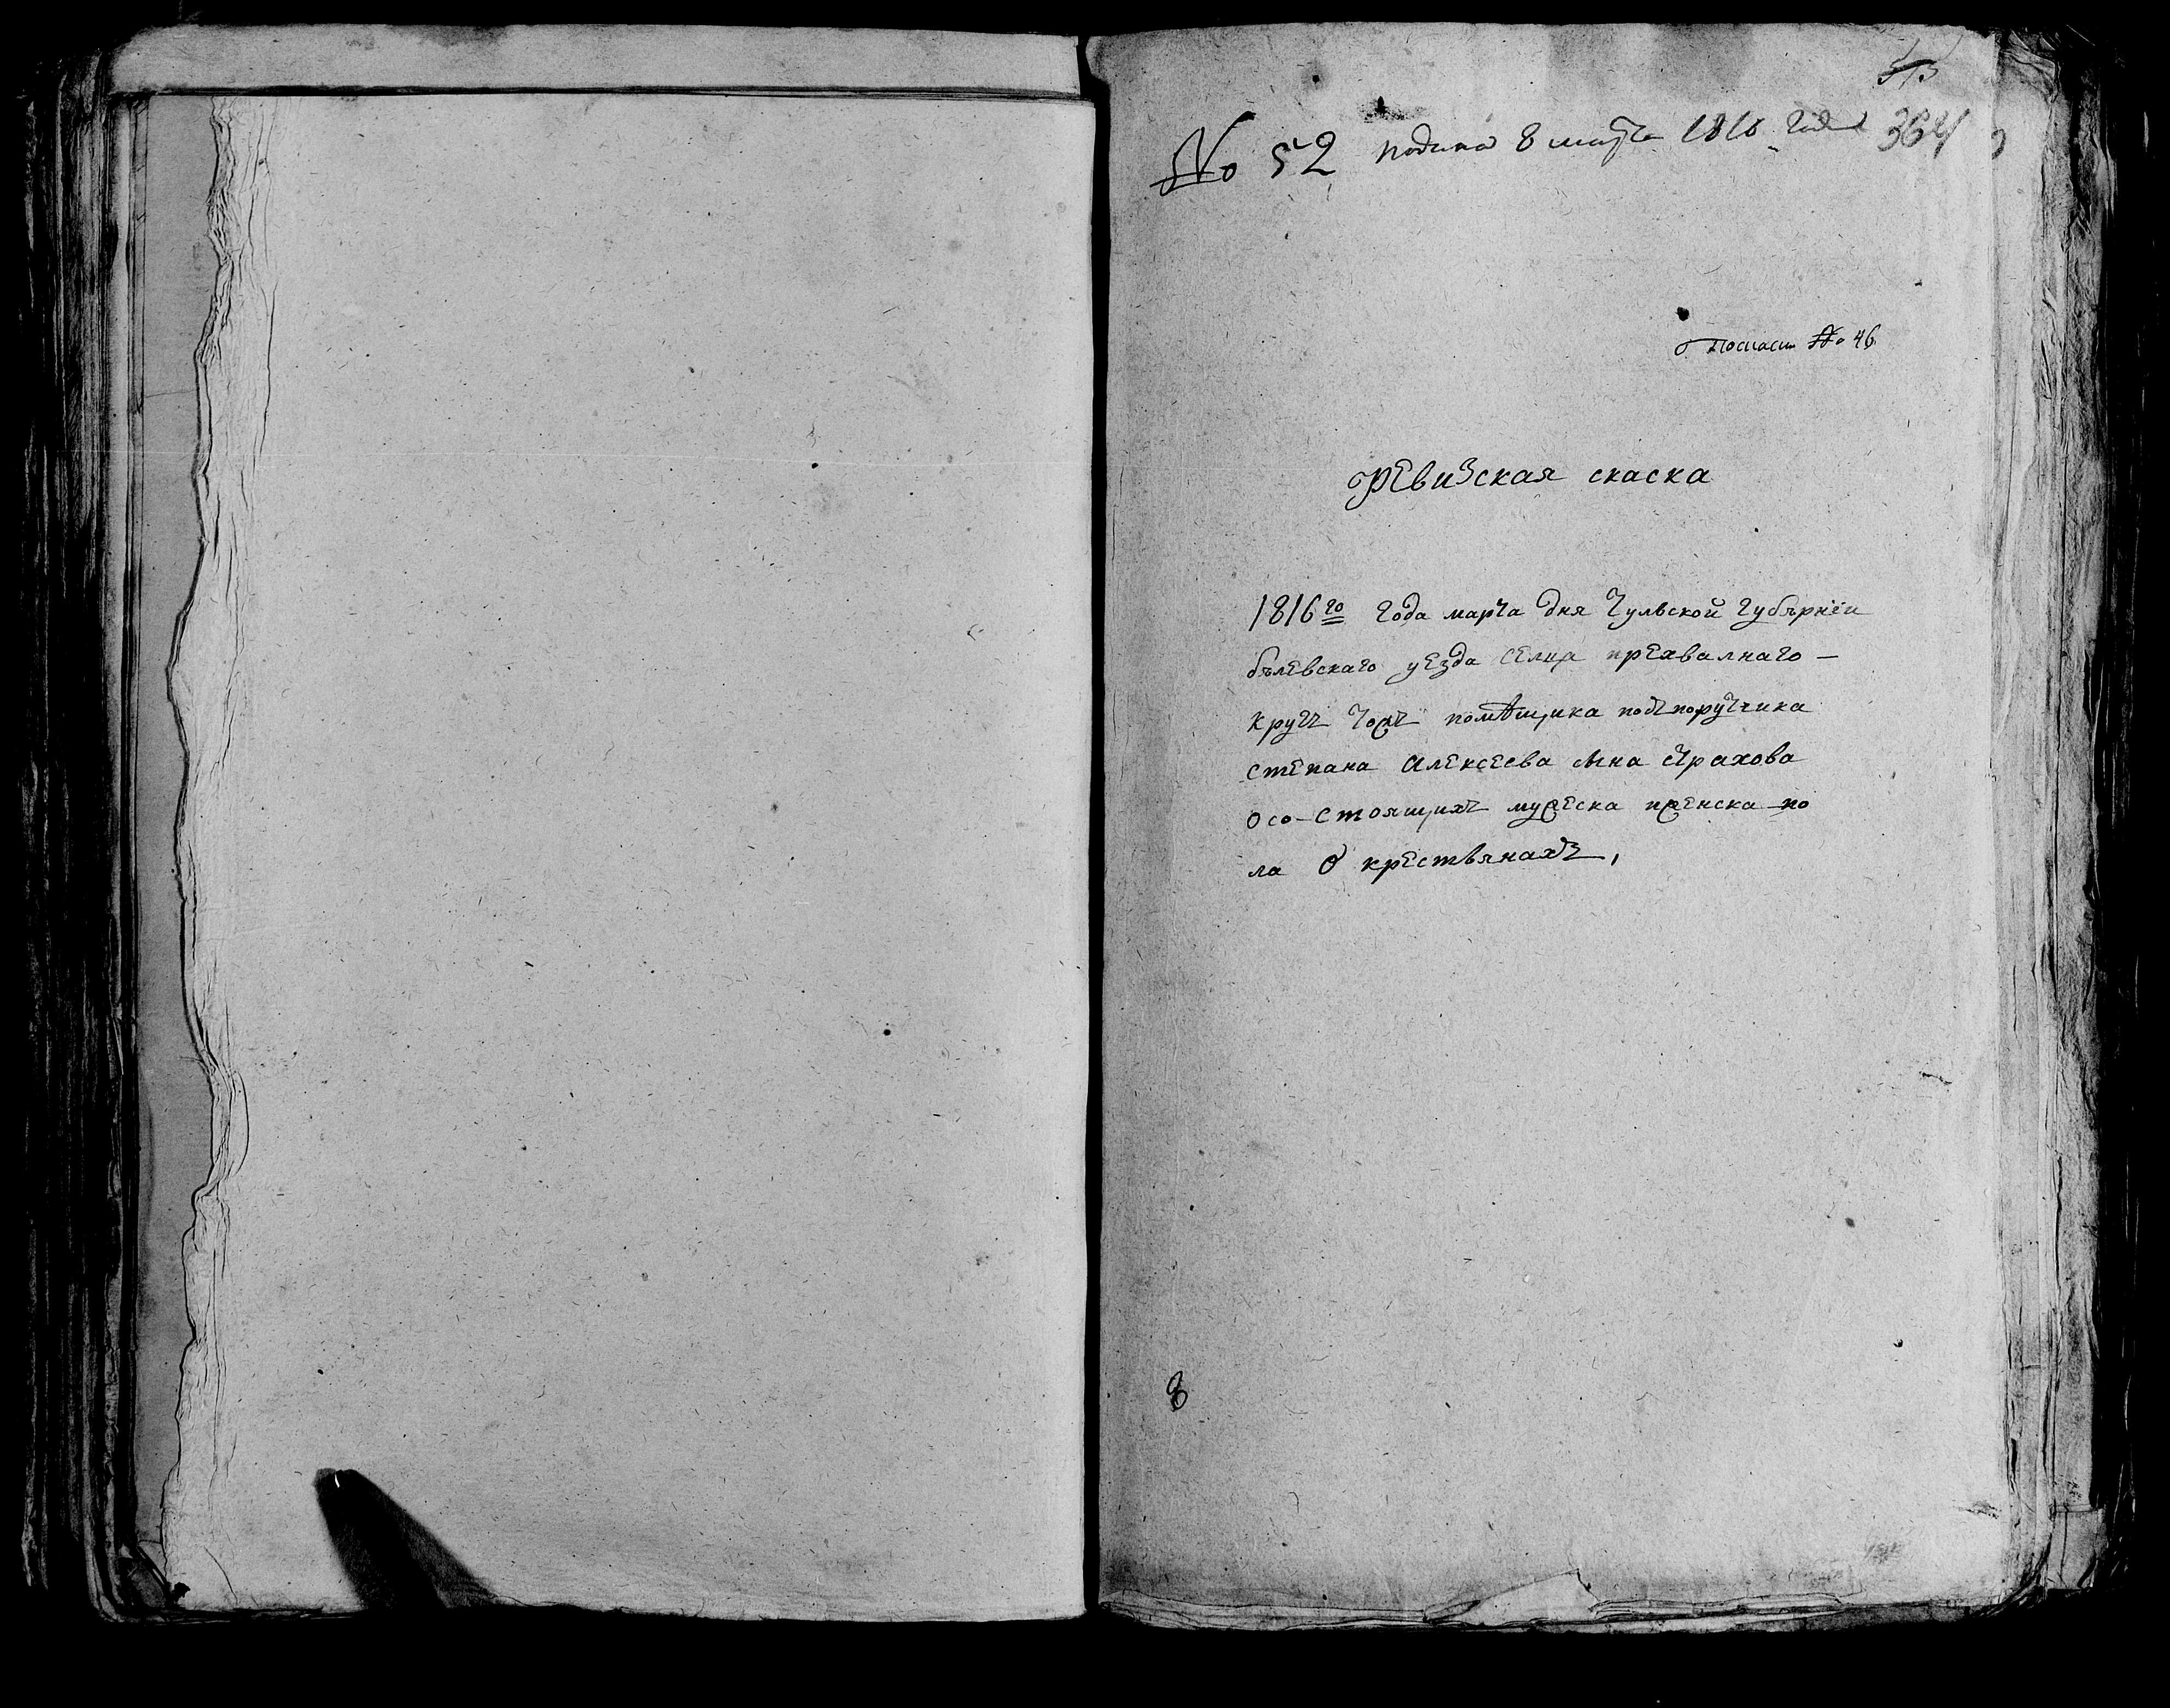 № 52 подана 8 марта 1816 года 364
№ 46
Ревизская скаска
1816го года марта дня тульской губърніи
бълевскаго уезда селца прехвалнаго
крутъ тожъ помѣщика подъпорутчика
степана алексеева сына страхова
осо-стоящихъ мужеска иженска по
ла О крестьянахъ,
8